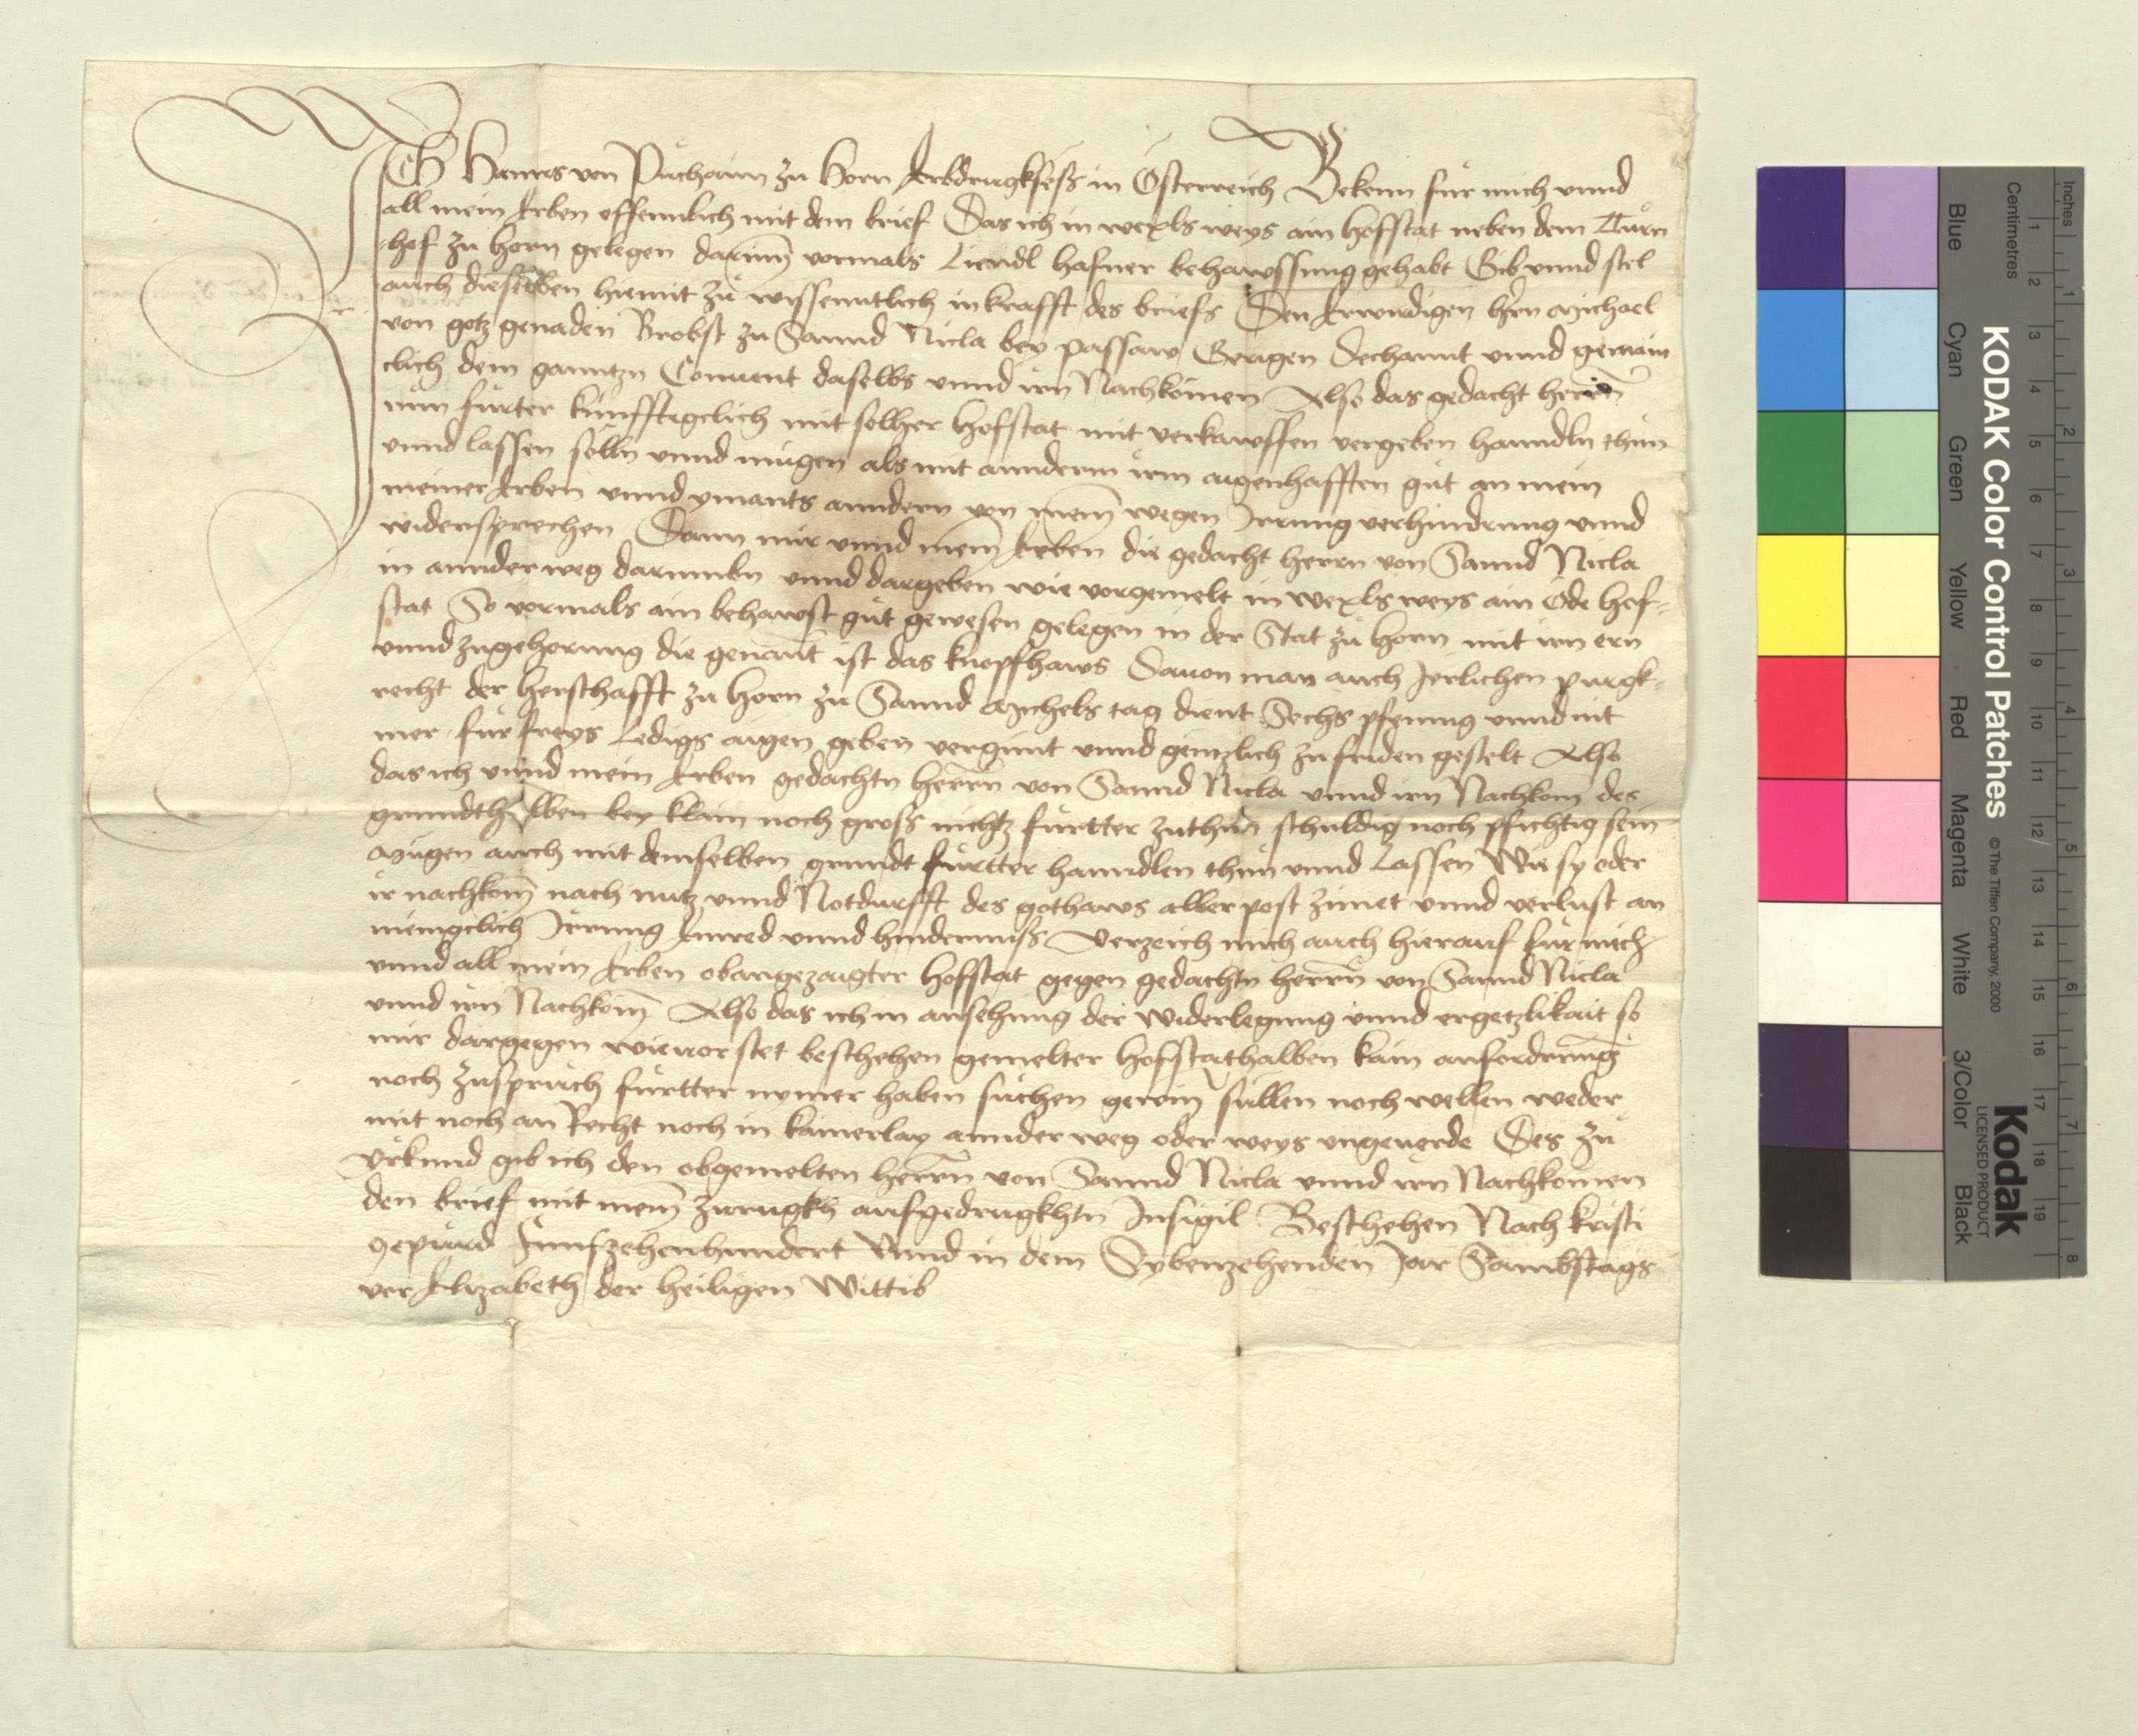 Ich Hanns von Puchaim zu Horn Erbdrugksess in Österreich Bekenn für mich vnnd
all mein Erben offennlich mit dem brief Das ich in wexls weys ain hofstat neben dem Turn
hof zu horn gelegen darinn vormals Liendl hafner behawssung gehabt Gib vnnd stel
auch dieselben hiemit zu wissenntlich in krafft des briefs Den Erwirdigen hern Michael
von gotz genaden Brobst zu Sannd Nicla bey passaw Gerigen Dechannt vnnd gemain
clich dem ganntzn Conuent daselbs vnnd irn Nachkomen Also das gedacht herrn
nun fürter kunfftigclich mit solher hofstat mit verkawffen vergeben hanndln thun
vnnd lassen solln vnnd mugen als mit annderm irm aigenhafften gut an mein
meiner Erben vnnd ymants anndern von meinen wegen Irrung verhindrung vnnd
widersprechen Dann mir vnnd mein Erben die gedacht herrn von Sannd Nicla
in annder weg darumben vnnd dargeben wie vorgemelt in wexls weys ain Öde hof-
stat So vormals ain behawst gut gewesen gelegen in der Stat zu horn mit irn ern
vnnd zugehorung die genannt ist das knopfhaws Dauon man auch Jerlichen purgk-
recht der herschafft zu horn zu Sannd Michels tag dient Sechs pfening vnnd nit
mer für freys Ledigs aigen geben vergunt vnnd gentzlich zu friden gestelt Also
das ich vnnd mein Erben gedachtn herrn von Sannd Nicla vnnd irn Nachkom des
grundthalben bey klain noch gross nichtz fürtter zuthun schuldig noch pflichtig sein
Mugen auch mit demselben grundt fürtter hanndlen thun vnnd Lassen Wie sy oder
ir nachkom nach nutz vnnd Notdurfft des gothaws aller pest zimet vnnd verlust an
menigclich Irrung Einred vnnd hindernuss Verzeich mich auch hierauf für mich
vnnd all mein Erben obangezaigter hofstat gegen gedachtn herrn von Sannd Nicla
vnnd irn Nachkom Also das ich in ansehung der widerlegung vnnd ergetzlikait so
mir dargegen wie vor stet beschehen gemelter hofstathalben kain anfordrung
noch zuspruch fürtter nymer haben suchen gewin sullen noch wellen weder
mit noch an Recht noch in kainerlay annder weg oder weys vngeuerde Des zu
Vrkund gib ich den obgemelten herrn von Sannd Nicla vnnd irn Nachkomen
den brief mit mein zurugkh aufgedrugkhtn Insigil Beschehen Nach kristi
gepurd Funfzehenhundert Vnnd in dem Sybenzehenden Jar Sambstags
vor Elizabeth der heiligen Wittib
Inches
Centimetres
KODAK Color Control Patches
© The Tiffen Company, 2000
Kodak
LICENSED PRODUCT
Blue
Cyan
Green
Yellow
Red
Magenta
White
3/Color
Black
1 2 3 4 5 6 7 8 9 10 11 12 13 14 15 16 17 18 19
1 2 3 4 5 6 7 8